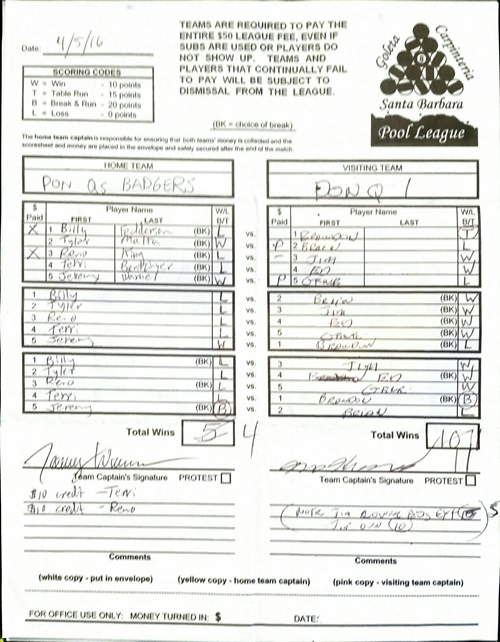 Date: 4/5/16
TEAMS ARE REQUIRED TO PAY THE
ENTIRE $50 LEAGUE FEE, EVEN IF
SUBS ARE USED OR PLAYERS DO
NOT SHOW UP. TEAMS AND
PLAYERS THAT CONTINUALLY FAIL
TO PAY WILL BE SUBJECT TO
DISMISSAL FROM THE LEAGUE.
SCORING CODES
W = Win - 10 points
T = Table Run - 15 points
B = Break & Run - 20 points
L = Loss - 0 points
(BK = choice of break)
Goleta Carpinteria
Santa Barbara
Pool League
The home team captain is responsible for ensuring that both teams' money is collected and the
scoresheet and money are placed in the envelope and safely secured after the end of the match.
HOME TEAM
DON Qs BADGERS
$ Paid Player Name FIRST LAST W/L B/T
X 1 Billy (BK) L
2 Tyler W
X 3 Reno King (BK) L
4 Terri L
5 Jeremy (BK) W
1 Billy L
2 Tyler L
3 Reno L
4 Terri L
5 Jeremy W
1 Billy (BK) L
2 Tyler L
3 Reno (BK) L
4 Terri L
5 Jeremy (BK) B
Total Wins 5 4
Team Captain's Signature PROTEST
$10 credit - Terri
$10 credit - Reno
Comments
VISITING TEAM
DON Q 1
$ Paid Player Name FIRST LAST W/L B/T
vs. 1 Brandon T
vs. P 2 Brian (BK) L
vs. 3 Jim W
vs. 4 (BK) W
vs. P 5 L
vs. 2 Brian (BK) W
vs. 3 Jim (BK) W
vs. 4 (BK) W
vs. 5 (BK) W
vs. 1 Brandon (BK) L
vs. 3 Jim W
vs. 4 (BK) W
vs. 5 W
vs. 1 Brandon (BK) B
vs. 2 Brian L
Total Wins 10
Team Captain's Signature PROTEST
Comments
(white copy - put in envelope) (yellow copy - home team captain) (pink copy - visiting team captain)
FOR OFFICE USE ONLY: MONEY TURNED IN: $ DATE: